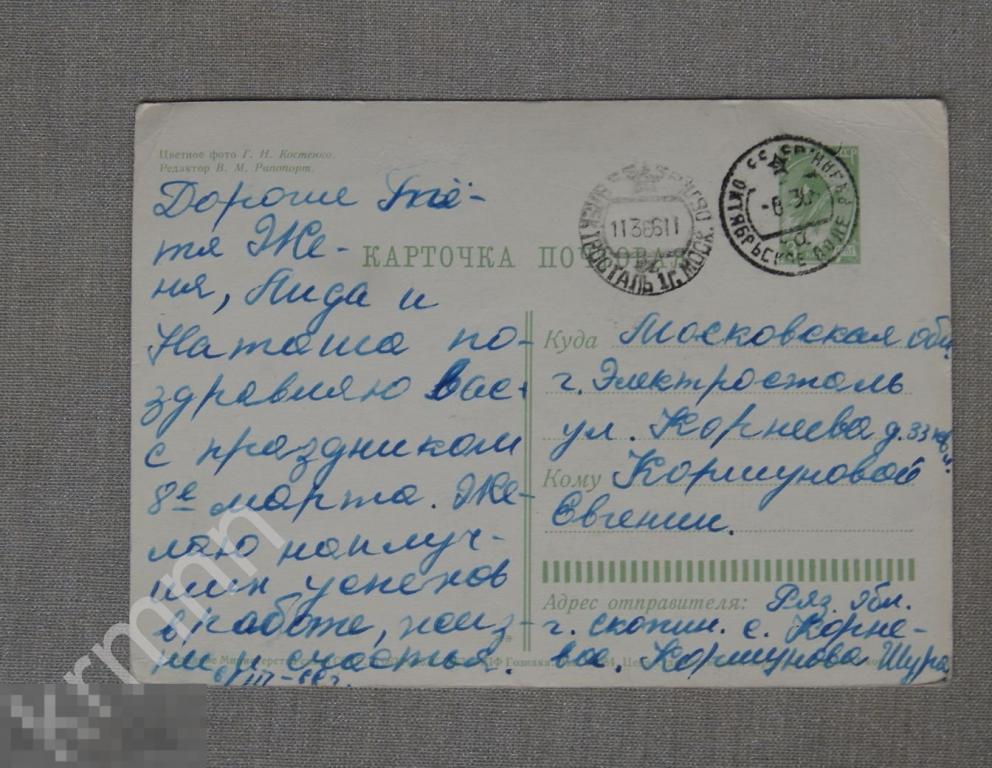 Цветное фото Г. Н. Костенко.
Редактор В. М. Рапопорт.
КАРТОЧКА ПОЧТОВАЯ
Дорогие Тё-
тя Же-
ня, Лида и
Наташа по-
здравляю Вас
с праздником
8е марта. Же-
лаю наилуч-
ших успехов
в работе, жиз-
ни и счастья.
6/III-66г.
1136611
ЭЛЕКТРОСТАЛЬ 1 Г. МОСК.
ОКТЯБРЬСКОЕ ПОЛЕ
Куда Московская обл
г. Электросталь
ул. Корнеева д. 33
Кому Коршуновой
Евгении.
Адрес отправителя: Ряз. обл.
г. скопин. с. Корне-
вое. Коршунова Шура
krmnn
krmnn